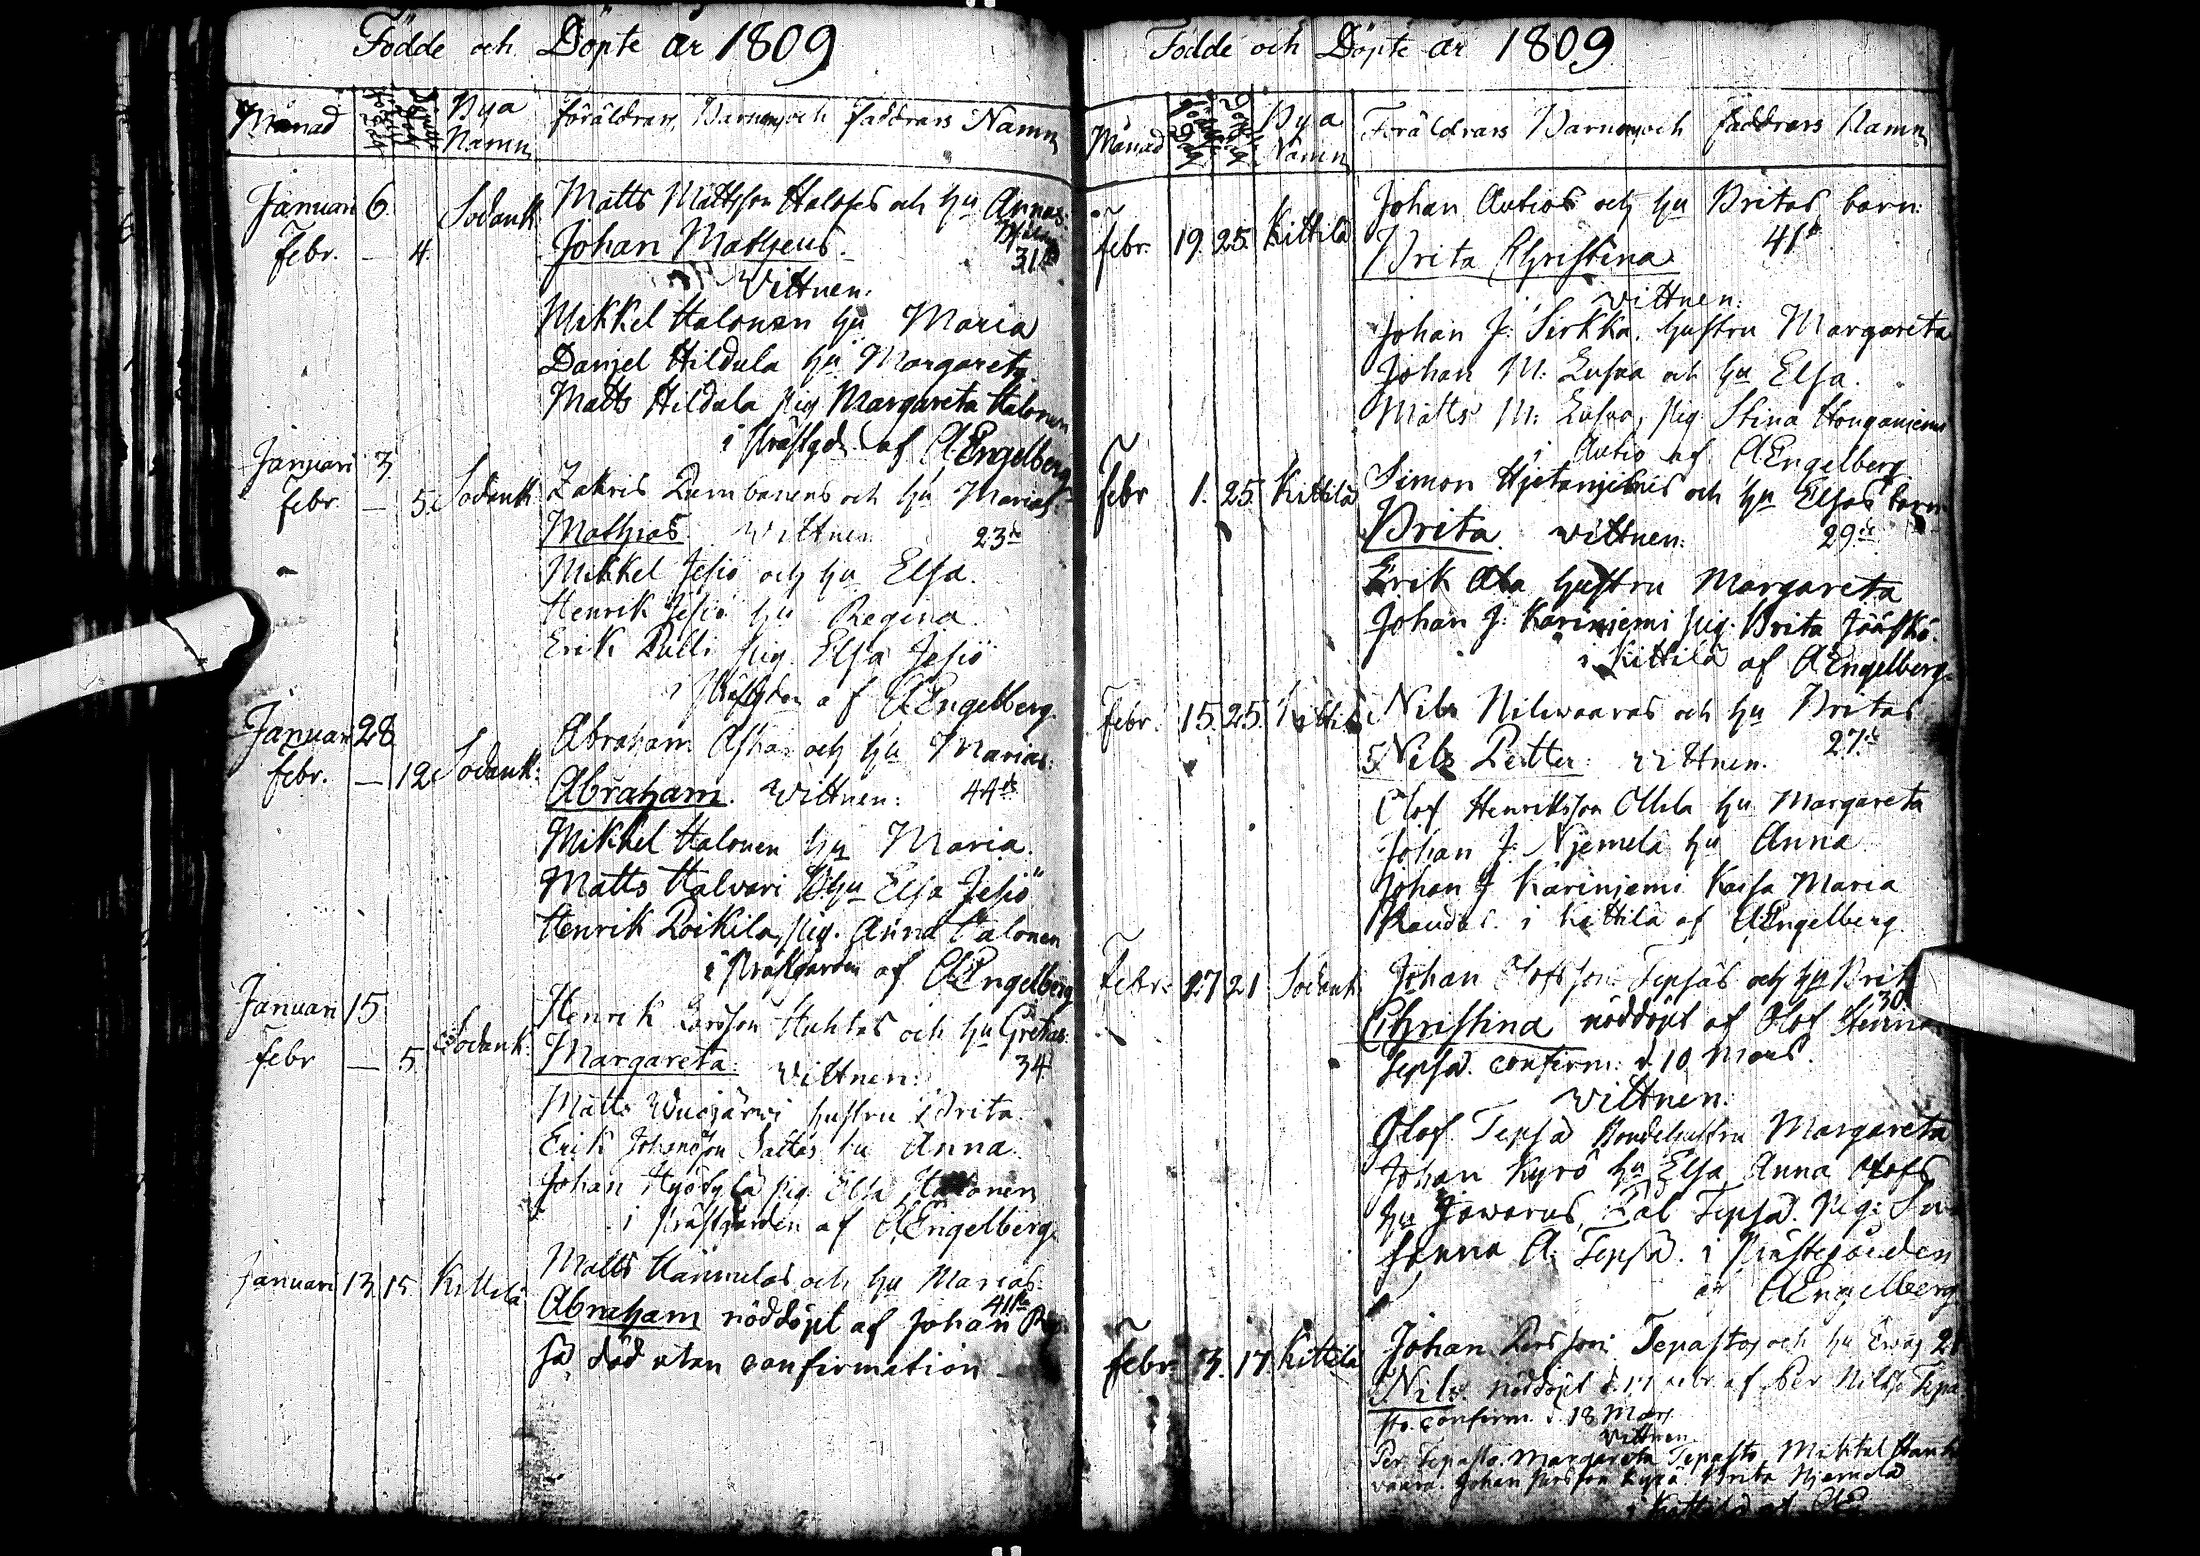 Födde och Döpte år 1809
Månad
Bya Namn
Föräldrars, Barnens och Faddrars Namn
Januari 6 Sodank. Matts Mattsson Halosis och hu Annas
Febr. — 4. Johan Matheus. 31
Vittnen:
Mikkel Halonen hu Maria
Daniel Hildula hu Margareta
Matts Hildula pig Margareta Halonen
i Prästgd. af AEngelberg
Januari 3
Febr. — 5. Sodank Zakris och hu Marias
Mathias. Vittnen 23
Mikkel Jesiö och hu Elsa.
Henrik Jesiö hu Regina
Erik Pulli pig. Elsa Jesiö
i af AEngelberg.
Januari 28 Abraham och hu Marias:
Febr. — 12 Sodank: Abraham. Vittnen: 44
Mikkel Halonen hu Maria.
Matts Halvari hu Elsa Jesiö
Henrik Poikila, pig. Anna Halonen
i Prästgården af AEngelberg
Januari 15 Henrik Larsson Huhtas och hu Gretas:
Febr — 5 Sodank: Margareta: Vittnen: 34
Matts hustru Brita
Erik Johansson Sattas hu Anna
Johan pig. Elsa Halonen
i Prästgården af AEngelberg.
Januari 13 15 Kittilä Matts Hannulas och hu Marias:
41
Abraham nöddöpt af Johan
så död utan confirmation
Födde och Döpte år 1809
Månad Bya Namn Föräldrars Barnens och Faddrars Namn
Johan Autios och hu Britas barn:
Febr. 19. 25. Kittilä Brita Christina 41
Vittnen:
Johan J: Sirkka, hustru Margareta
Johan M: och hu Elsa.
Matts M: pig Stina
i Autio af AEngelberg
Febr 1. 25. Kittilä Simon Hjetanjemis och hu Elsas barn
Brita. vittnen: 29
Erik Ala hustru Margareta
Johan J: Karinjemi pig: Brita Jääskö.
i Kittilä af AEngelberg.
Febr. 15. 25. Kittilä Nils Nilivaaras och hu Britas
27
Nils Petter: vittnen.
Olof Henriksson Ollila hu Margareta
Johan J: Njemelä hu Anna
Johan J Karinjemi Kaisa Maria
i Kittilä af AEngelberg.
Febr. 27 21 Sodank Johan Olofsson Tepsas och hu Brit
30
Christina nöddöpt af Olof
Tepsa. confirm: d. 10 Mars.
Vittnen:
Olof Tepsa Bondehustru Margareta
Johan Kyrö hu Elsa Anna Olofs
hu Tepsa. Pig: Su
sanna A: Tepsa. i Prästegården
af AEngelberg
Febr 3. 17. Kittilä Johan Persson Tepastos och hu Evas 2
Nils. nöddöpt d. 17 af Per Nilss. Tepa
sto. confirm. d. 18 Mars
vittnen.
Per Tepasto. Margareta Tepasto, Mikkel Hank
vaara. Johan Persson Kyrö Brita Njemelä
i Kittilä af AE